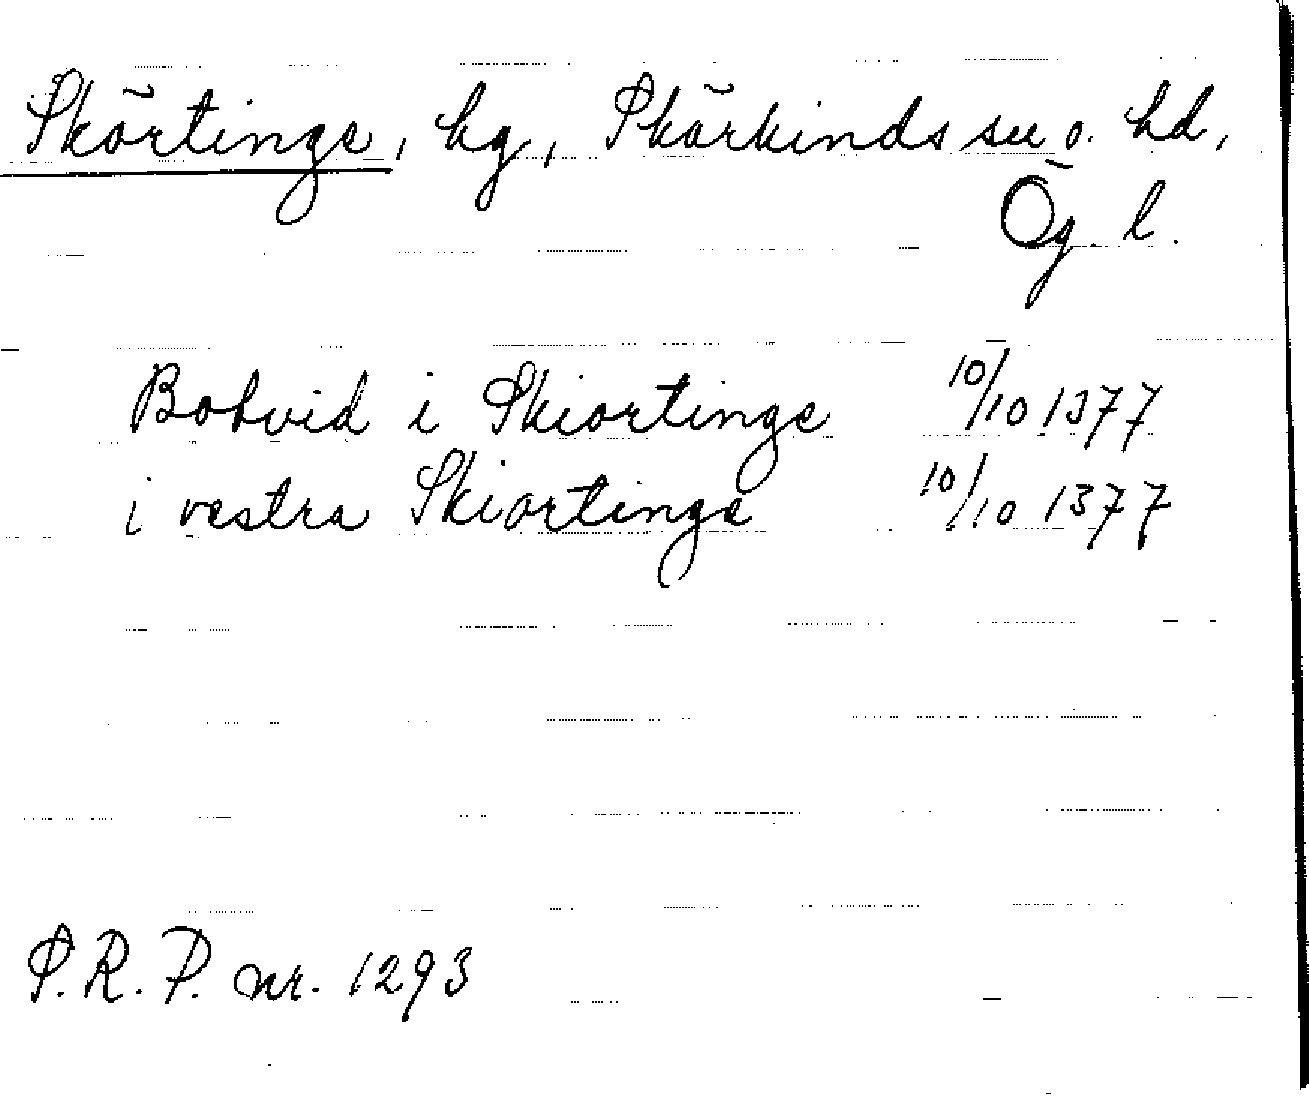 Skörtinge, hg, Skärkinds sn o. hd,
Ög. l.
Botvid i Skiortinge 10/10 1377
i vestra Skiortinge 10/10 1377
S.R.P. nr. 1293